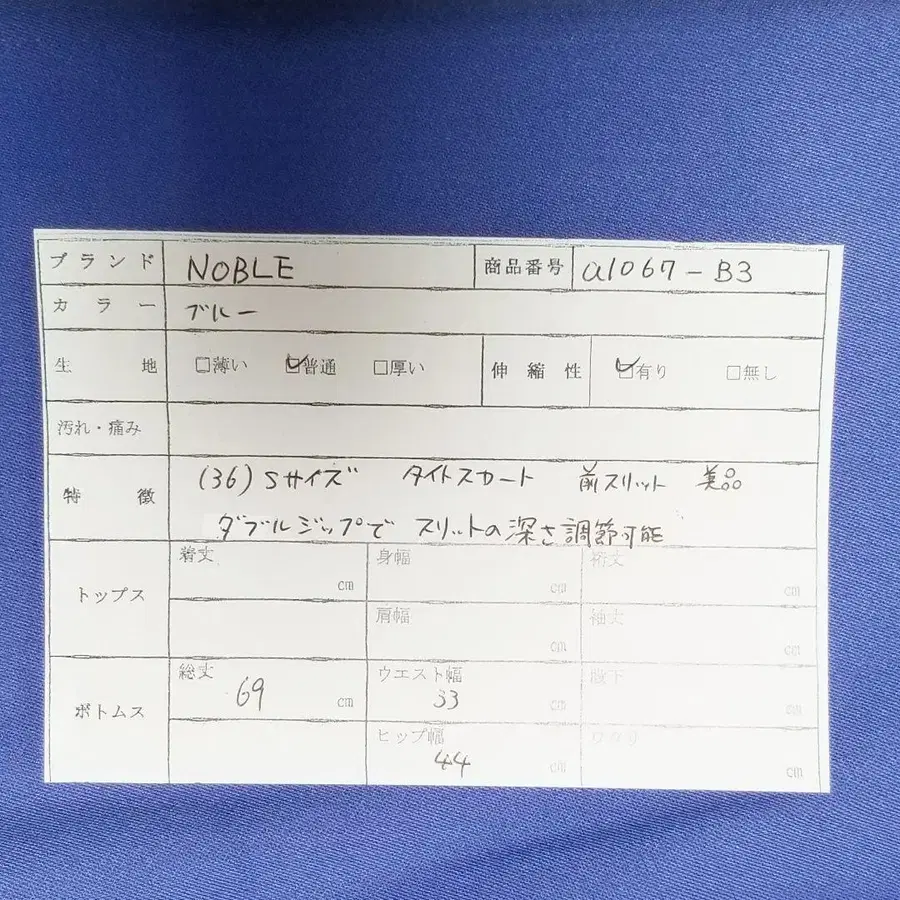 ブランド NOBLE 商品番号 a1067-B3
カラー ブルー
生地 □薄い ☑普通 □厚い 伸縮性 ☑有り □無し
汚れ・痛み
特徴 (36) Sサイズ タイトスカート 前スリット 美品
ダブルジップで スリットの深さ調節可能
トップス 着丈 cm 身幅 cm 裄丈 cm
肩幅 cm 袖丈 cm
ボトムス 総丈 69 cm ウエスト幅 33 cm 股下 cm
ヒップ幅 44 cm cm